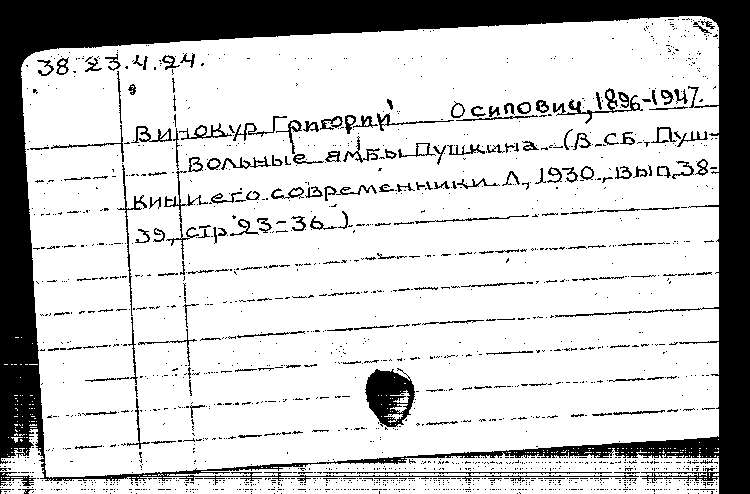 38.23.4.24.
Винокур, Григорий Осипович, 1896-1947.
Вольные ямбы Пушкина. (В сб., Пуш-
кин и его современники. Л., 1930., вып. 38-
39, стр. 23-36.)